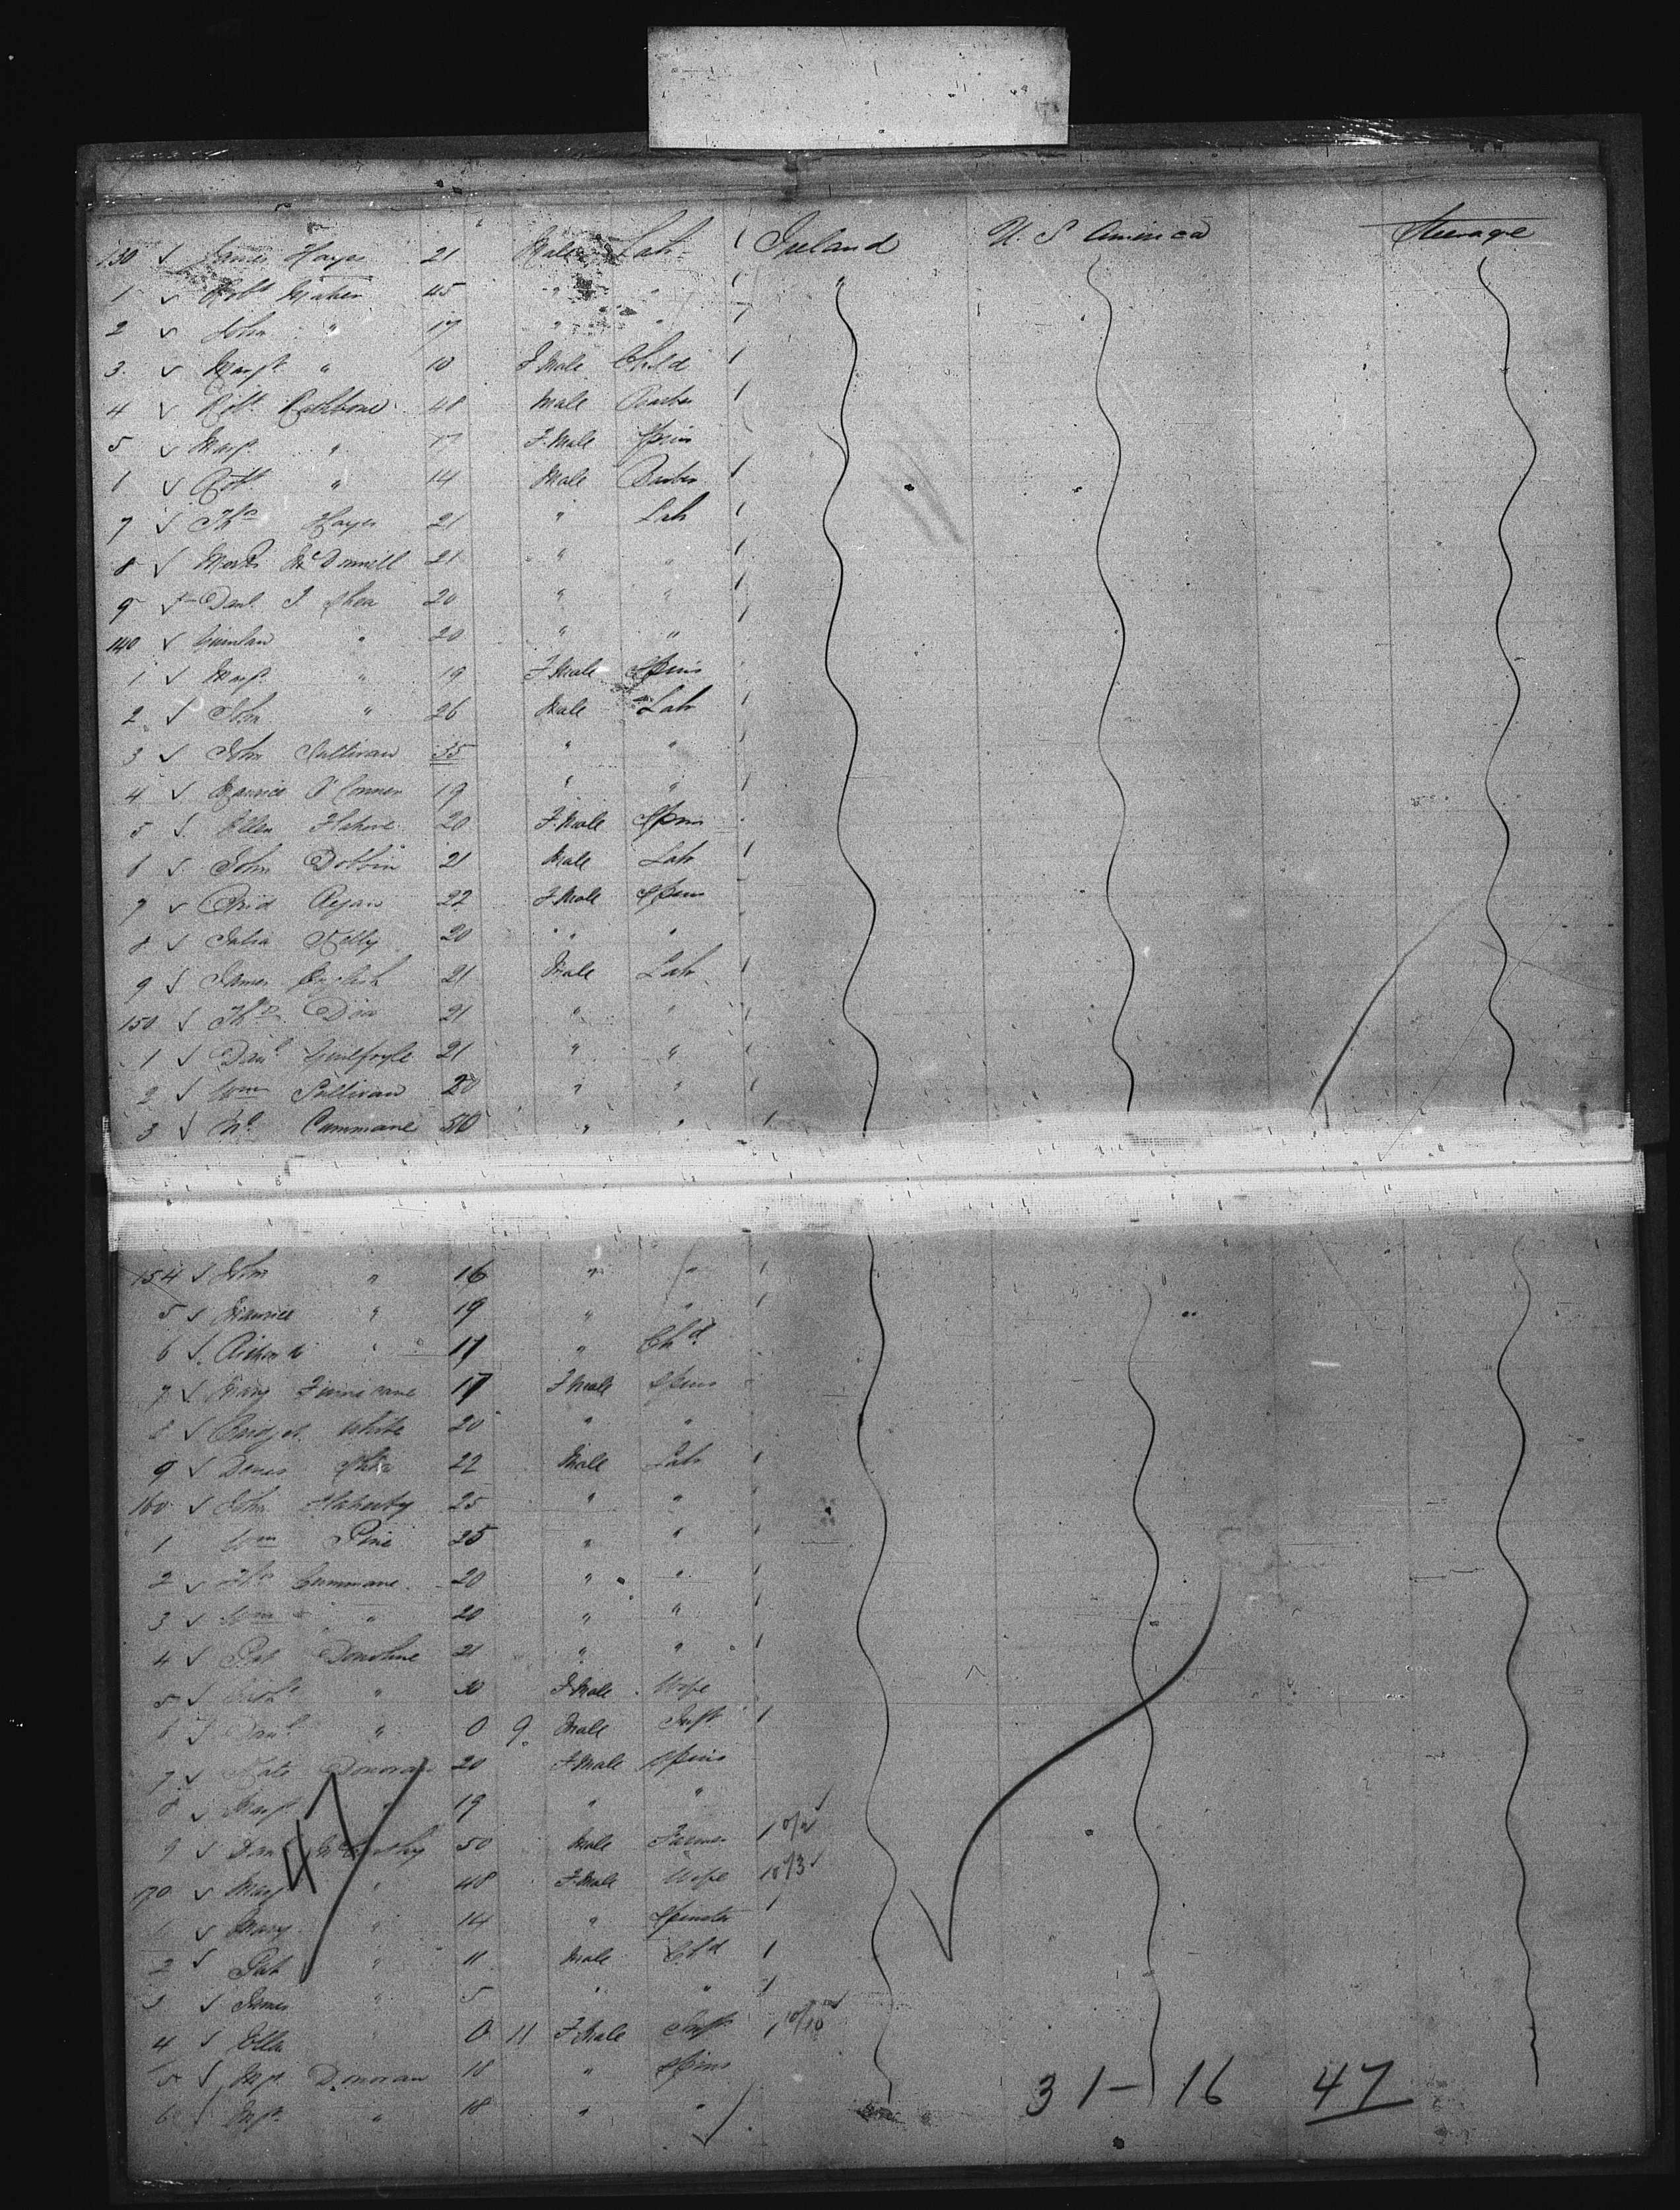 130 James Hayes 21 Male Lab 1 Ireland U. S America Steerage
1 Robt Maher 45 " " 1 "
2 John " 17 " " 1
3 Margt " 10 F. Male Child 1
4 Robt Rathbone 48 Male Barber 1
5 Margt " 17 F. Male Spins
1 Robt " 14 Male Barber 1
7 Thos Hayes 21 " Lab 1
8 McDonnell 21 " " 1
9 Danl J. Shea 20 " " 1
140 Quinlan " 20 " " 1
1 Margt " 19 F. Male Spins
2 John " 26 Male Lab 1
3 John Sullivan 35 " "
4 Maurice O'Connor 19 " " 1
5 Ellen 20 F. Male Spins
6 John Dobbin 21 Male Lab 1
7 Brid Ryan 22 F. Male Spins
8 Julia Kelly 20 " "
9 James English 21 Male Lab 1
150 Thos 21 " " 1
1 Danl Guilfoyle 21 " " 1
2 Wm Sullivan 20 " " 1
3 Cummane 50 " " 1
154 John " 16 " " 1
5 Maurice " 19 " " 1
6 Richard " 11 " Chd
7 Mary Finnicane 17 F. Male Spins
8 Bridget White 20 " "
9 Denis Shea 22 Male Lab 1
160 John Flaherty 25 " " 1
1 Wm 25 " " 1
2 Thos Cummane 20 " " 1
3 Wm " 20 " " 1
4 Pat Donohue 21 " " 1
5 Cathe " 20 F. Male Wife
6 Danl " 0 9 Male Inft 1
7 Kate Donovan 20 F. Male Spins
8 Margt " 19 " "
9 Dan McCarthy 50 Male Farmer 1
170 Margt " 48 F. Male Wife
1 Mary " 14 " Spinster 1
2 Pat " 11 Male Chd 1
3 James " 5 " " 1
4 Ellen " 0 11 F. Male Inft 1
5 Mgt Donovan 18 " Spins
6 Mgt " 18 " "
47
31 - 16 47